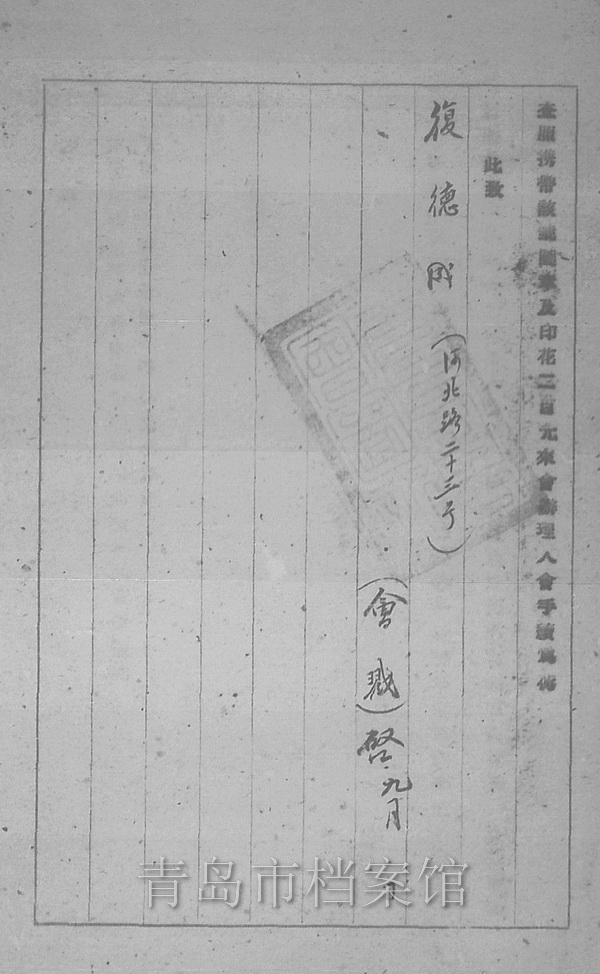 查照携帶該號圖章及印花二百元來會辦理入會手續為荷
此致
復德成(河北路二十三号)
(會戳)啓 九月
青岛市档案馆